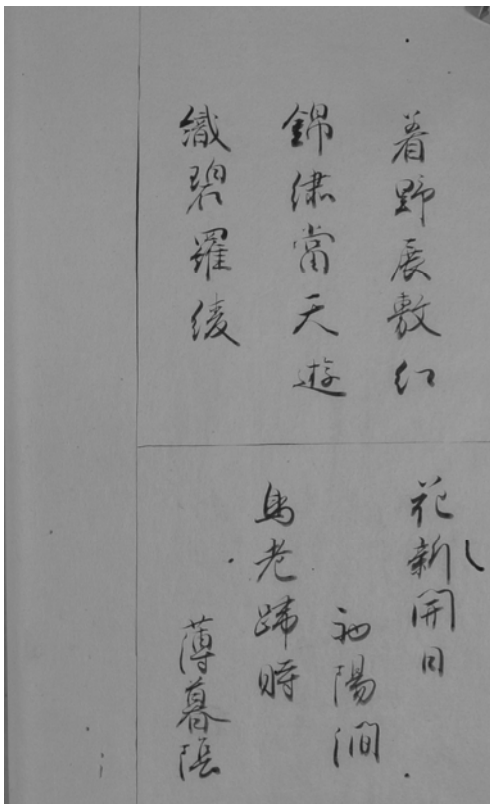 着野展敷紅
錦繍當天遊
織碧羅綾
花新開日
初陽潤
鳥老歸時
薄暮陰